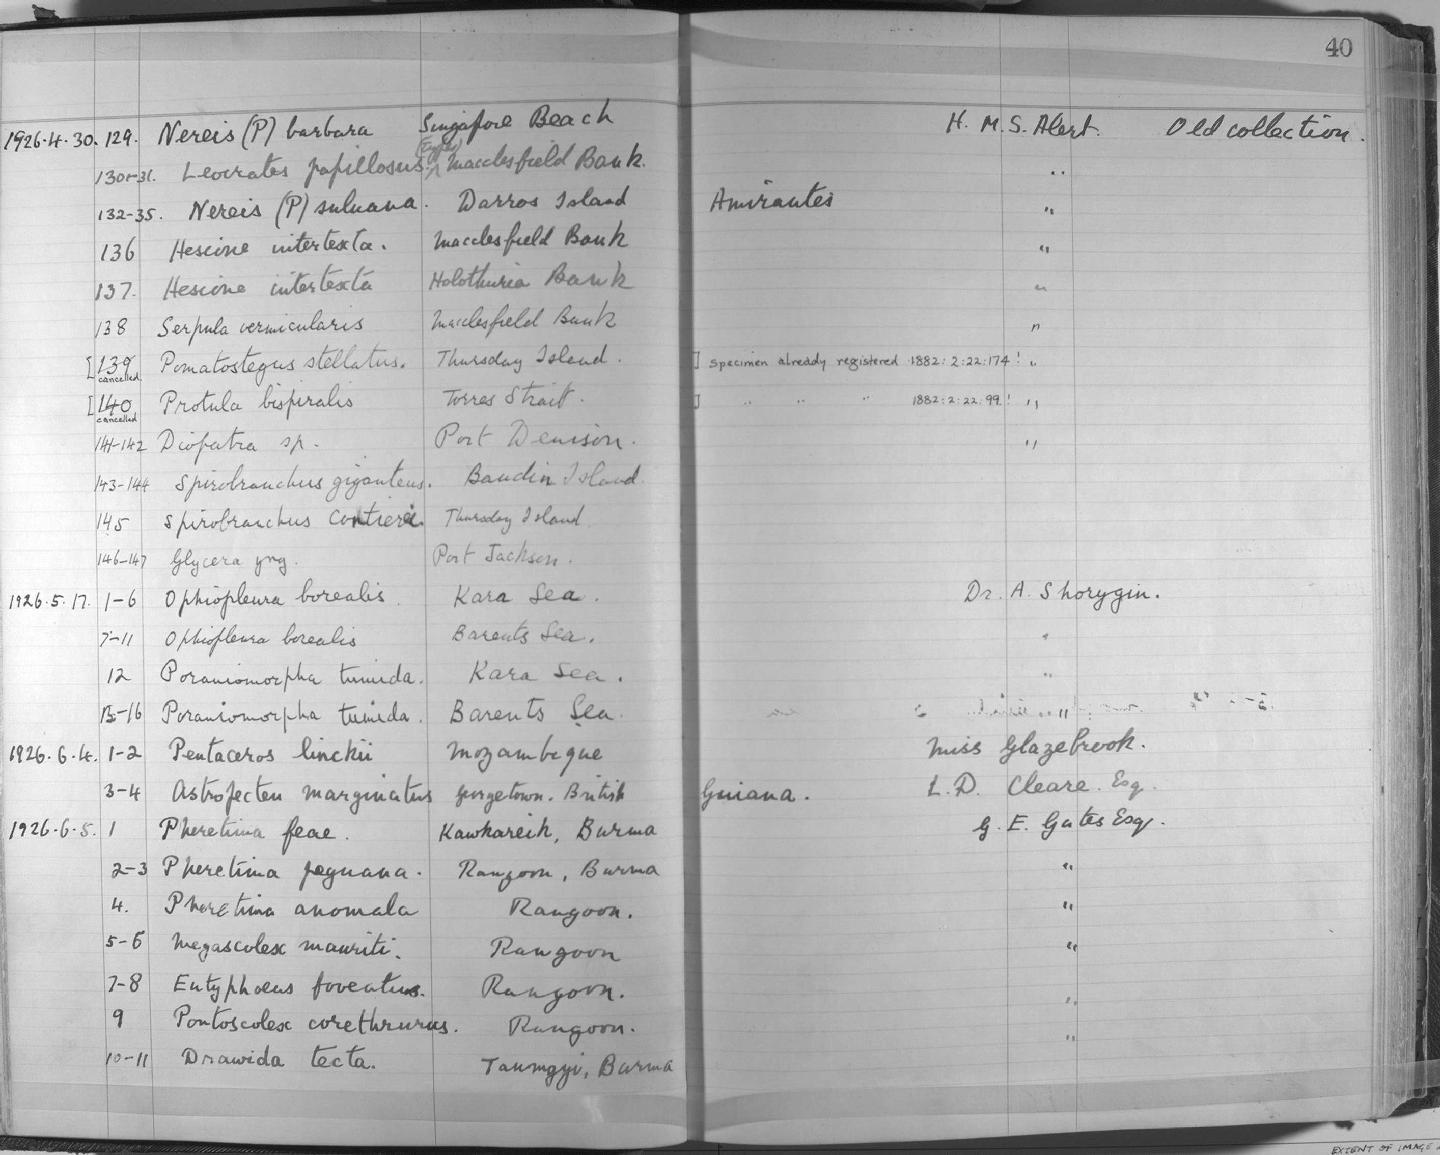 40
1926.4.30. 129. Nereis (P) barbara Singapore Beach H. M. S. Alert. Old collection.
130-31. Leocrates papillosus. (Type) Macclesfield Bank. "
132-35. Nereis (P) suluana. Darros Island Amirantes "
136 Hesione intertexta. Macclesfield Bank "
137. Hesione intertexta Holothuria Bank "
138 Serpula vermicularis Macclesfield Bank "
[139 cancelled Pomatostegus stellatus. Thursday Island. ] specimen already registered 1882:2:22:174! "
[140 cancelled Protula bispiralis Torres Strait. ] " " " 1882:2:22:99! "
141-142 Diopatra sp. Port Denison. "
143-144 Spirobranchus giganteus. Baudin Island.
145 Spirobranchus Thursday Island
146-147 Glycera yng. Port Jackson.
1926.5.17. 1-6 Ophiopleura borealis. Kara Sea. Dr. A. Shorygin.
7-11 Ophiopleura borealis Barents Sea. "
12 Poraniomorpha tumida. Kara Sea. "
13-16 Poraniomorpha tumida. Barents Sea. "
1926.6.4. 1-2 Pentaceros linckii Mozambique Miss Glazebrook.
3-4 Astropecten marginatus Georgetown. British Guiana. L. D. Cleare. Esq.
1926.6.5. 1 Pheretima feae. Kawkareik, Burma G. E. Gates Esq.
2-3 Pheretima peguana. Rangoon, Burma "
4. Pheretima anomala Rangoon. "
5-6 Megascolex mauriti. Rangoon "
7-8 Eutyphoeus foveatus. Rangoon. "
9 Pontoscolex corethrurus. Rangoon. "
10-11 Drawida tecta. Taumgyi, Burma
EXTENT OF IMAGE